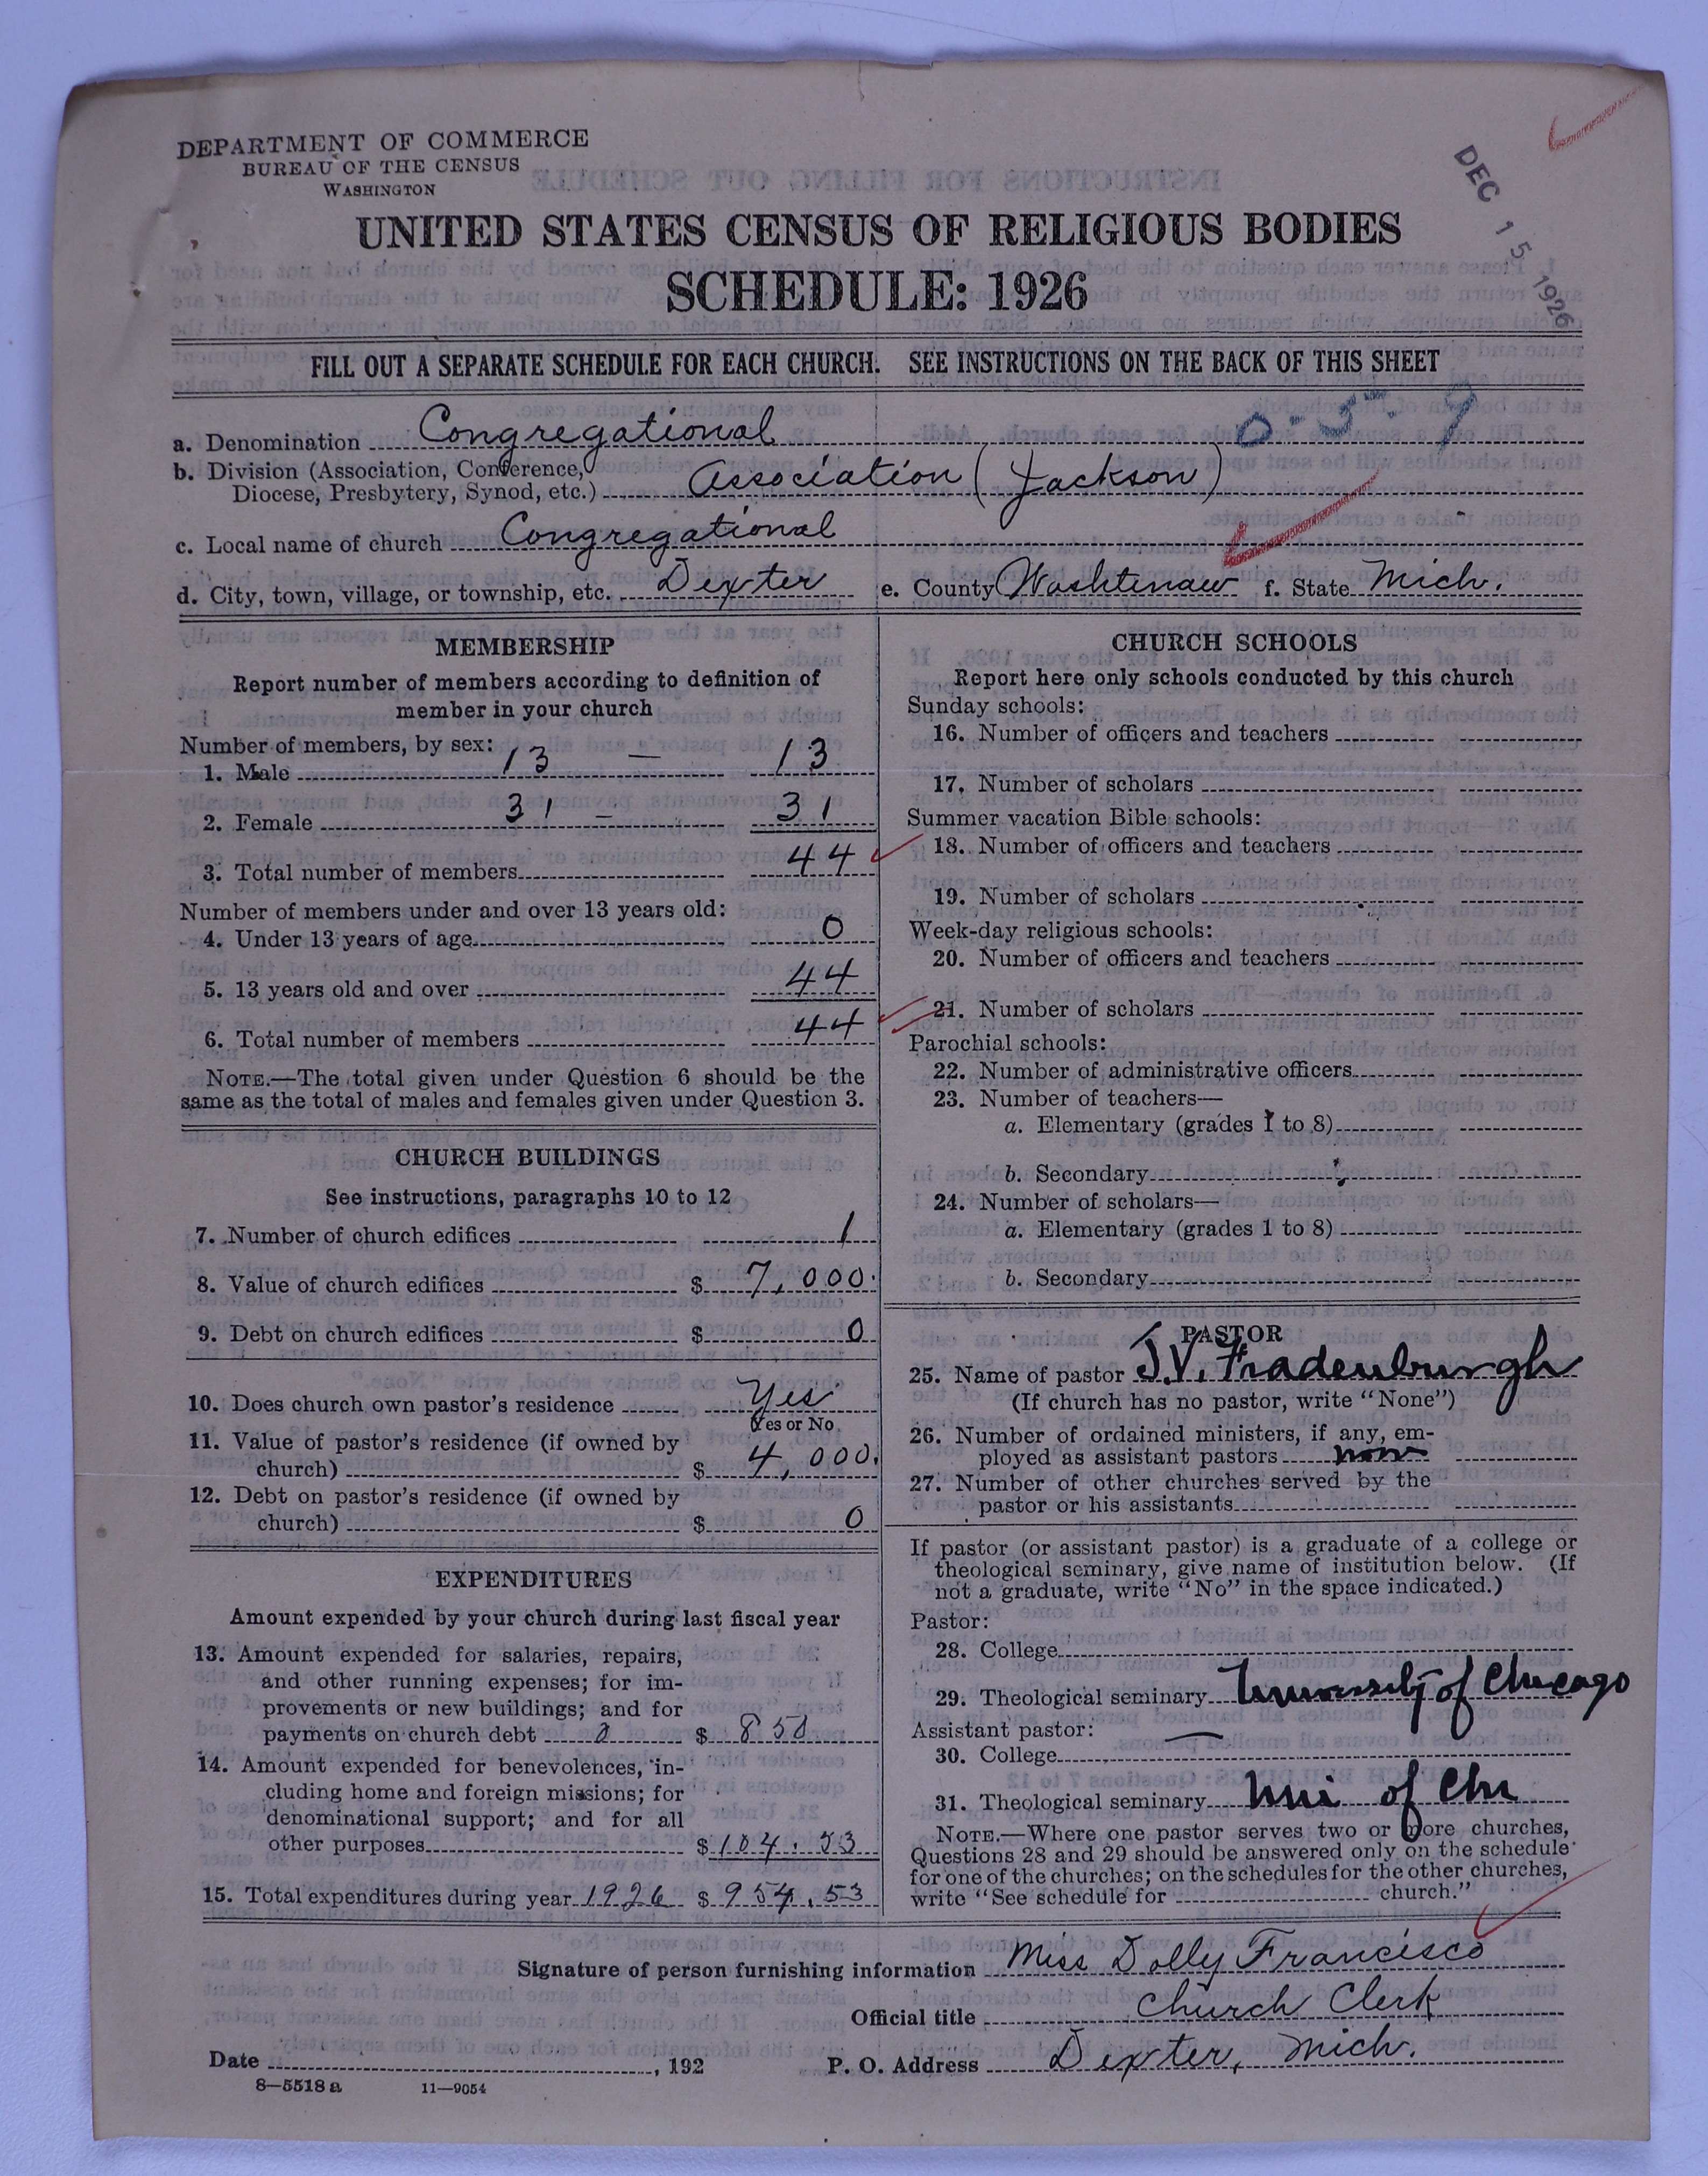 DEPARTMENT OF COMMERCE
BUREAU OF THE CENSUS
WASHINGTON
DEC 15 1926
UNITED STATES CENSUS OF RELIGIOUS BODIES
SCHEDULE: 1926
FILL OUT A SEPARATE SCHEDULE FOR EACH CHURCH. SEE INSTRUCTIONS ON THE BACK OF THIS SHEET
0-5-9
a. Denomination Congregational
b. Division (Association, Conference,
Diocese, Presbytery, Synod, etc.) Association (Jackson)
c. Local name of church Congregational
d. City, town, village, or township, etc. Dexter e. County Washtenaw f. State Mich.
MEMBERSHIP
Report number of members according to definition of
member in your church
Number of members, by sex:
1. Male 13 — 13
2. Female 31 — 31
3. Total number of members 44
Number of members under and over 13 years old:
4. Under 13 years of age 0
5. 13 years old and over 44
6. Total number of members 44
NOTE.—The total given under Question 6 should be the
same as the total of males and females given under Question 3.
CHURCH BUILDINGS
See instructions, paragraphs 10 to 12
7. Number of church edifices 1
8. Value of church edifices $ 7,000.
9. Debt on church edifices $ 0
10. Does church own pastor's residence Yes
Yes or No
11. Value of pastor's residence (if owned by
church) $ 4,000.
12. Debt on pastor's residence (if owned by
church) $ 0
EXPENDITURES
Amount expended by your church during last fiscal year
13. Amount expended for salaries, repairs,
and other running expenses; for im-
provements or new buildings; and for
payments on church debt 0 $ 850
14. Amount expended for benevolences, in-
cluding home and foreign missions; for
denominational support; and for all
other purposes $ 104.53
15. Total expenditures during year 1926 $ 954.53
CHURCH SCHOOLS
Report here only schools conducted by this church
Sunday schools:
16. Number of officers and teachers
17. Number of scholars
Summer vacation Bible schools:
18. Number of officers and teachers
19. Number of scholars
Week-day religious schools:
20. Number of officers and teachers
21. Number of scholars
Parochial schools:
22. Number of administrative officers
23. Number of teachers—
a. Elementary (grades 1 to 8)
b. Secondary
24. Number of scholars—
a. Elementary (grades 1 to 8)
b. Secondary
PASTOR
25. Name of pastor J.V. Fradenburgh
(If church has no pastor, write "None")
26. Number of ordained ministers, if any, em-
ployed as assistant pastors none
27. Number of other churches served by the
pastor or his assistants
If pastor (or assistant pastor) is a graduate of a college or
theological seminary, give name of institution below. (If
not a graduate, write "No" in the space indicated.)
Pastor:
28. College
29. Theological seminary University of Chicago
Assistant pastor: —
30. College
31. Theological seminary Uni of Chi
NOTE.—Where one pastor serves two or more churches,
Questions 28 and 29 should be answered only on the schedule
for one of the churches; on the schedules for the other churches,
write "See schedule for church."
Signature of person furnishing information Miss Dolly Francisco
Official title Church Clerk
Date , 192 P. O. Address Dexter, Mich.
8—5518 a 11—9054